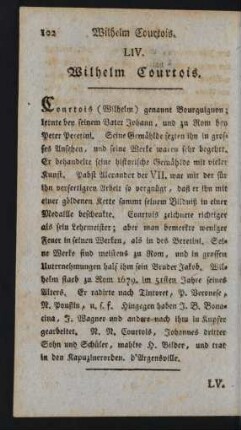 102 Wilhelm Courtois.
LIV.
Wilhelm Courtois.
Courtois (Wilhelm) genannt Bourguignon;
lernte bey seinem Vater Johann, und zu Rom bey
Peter Beretini. Seine Gemählde sezten ihn in gros-
ses Ansehen, und seine Werke waren sehr begehrt.
Er behandelte seine historische Gemählde mit vieler
Kunst. Pabst Alexander der VII. war mit der für
ihn verfertigten Arbeit so vergnügt, daß er ihn mit
einer göldenen Kette sammt seinem Bildniß in einer
Medaille beschenkte. Courtois zeichnete richtiger
als sein Lehrmeister; aber man bemerkte weniger
Feuer in seinen Werken, als in des Beretini. Sei-
ne Werke sind meistens zu Rom, und in grossen
Unternehmungen half ihm sein Bruder Jakob. Wil-
helm starb zu Rom 1679. im 51sten Jahre seines
Alters. Er radirte nach Tintoret, P. Veronese,
N. Poußin, u. s. f. Hingegen haben J. B. Bona-
cina, J. Wagner und andere nach ihm in Kupfer
gearbeitet. N. N. Courtois, Johannes dritter
Sohn und Schüler, mahlte H. Bilder, und trat
in den Kapuzinerorden. d'Argensville.
LV.